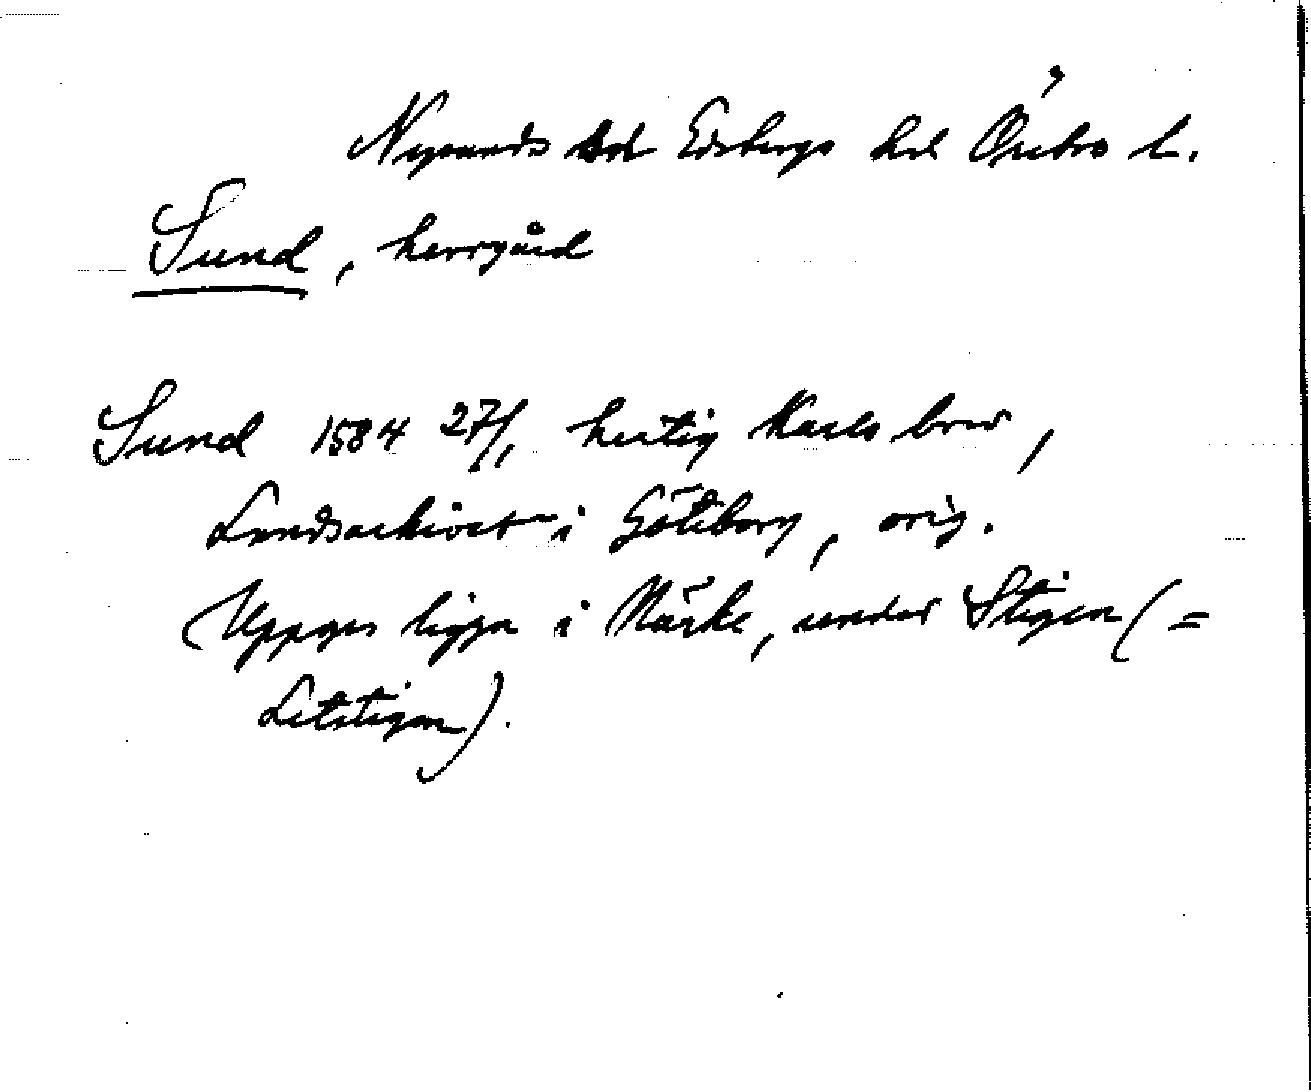 Nysunds sn Edsbergs hd Örebro l.
Sund, herrgård
Sund 1584 27/1 hertig Karls brev,
Landsarkivet i Göteborg, orig.
(Uppges ligga i Närke, under Stigen (=
Letstigen).